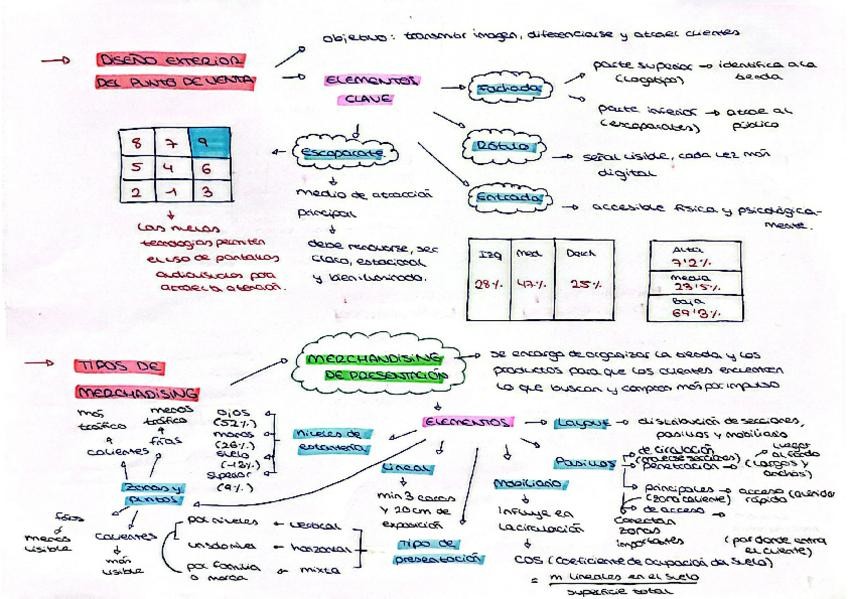 objetivo: transmitir imagen, diferenciarse y atraer clientes
→ DISEÑO EXTERIOR
DEL PUNTO DE VENTA
→ ELEMENTOS
CLAVE
→ Fachada
parte superior → identifica a la
(logotipo) tienda
parte inferior → atrae al
(escaparates) público
Rótulo
→ señal visible, cada vez más
digital
Entrada
→ accesible física y psicológica-
mente.
Escaparate
medio de atracción
principal
debe renovarse, ser
claro, estacional
y bien iluminado.
8 7 9
5 4 6
2 1 3
Las nuevas
tecnologías permiten
el uso de pantallas
audiovisuales para
atraer la atención.
Izq Med Dech
28% 47% 25%
Alta
7'2%
media
23'5%
Baja
69'3%
→ TIPOS DE
MERCHADISING
MERCHANDISING
DE PRESENTACIÓN
→ se encarga de organizar la tienda y los
productos para que los clientes encuentren
lo que buscan y compren más por impulso
ELEMENTOS
→ Layout → distribución de secciones,
pasillos y mobiliario
Pasillos
de circulación
(moverse secciones)
penetración → (largos y
anchos)
llegar
al fondo
principales → acceso
(zona caliente) rápido
de acceso →
(por donde entra
el cliente)
conectan
zonas
importantes
Mobiliario
Influye en
la circulación
COS (Coeficiente de Ocupación del Suelo)
= m lineales en el suelo
superficie total
Lineal
min 3 caras
y 20 cm de
exposición
Tipo de
presentación
vertical
horizontal
mixta
por niveles
uns do niveles
por familia
o marca
niveles de
estantería
ojos
(52%)
manos
(26%)
suelo
(13%)
superior
(9%)
Zonas y
puntos
más
tráfico
calientes
menos
tráfico
frías
fríos
menos
visible
calientes
más
visible